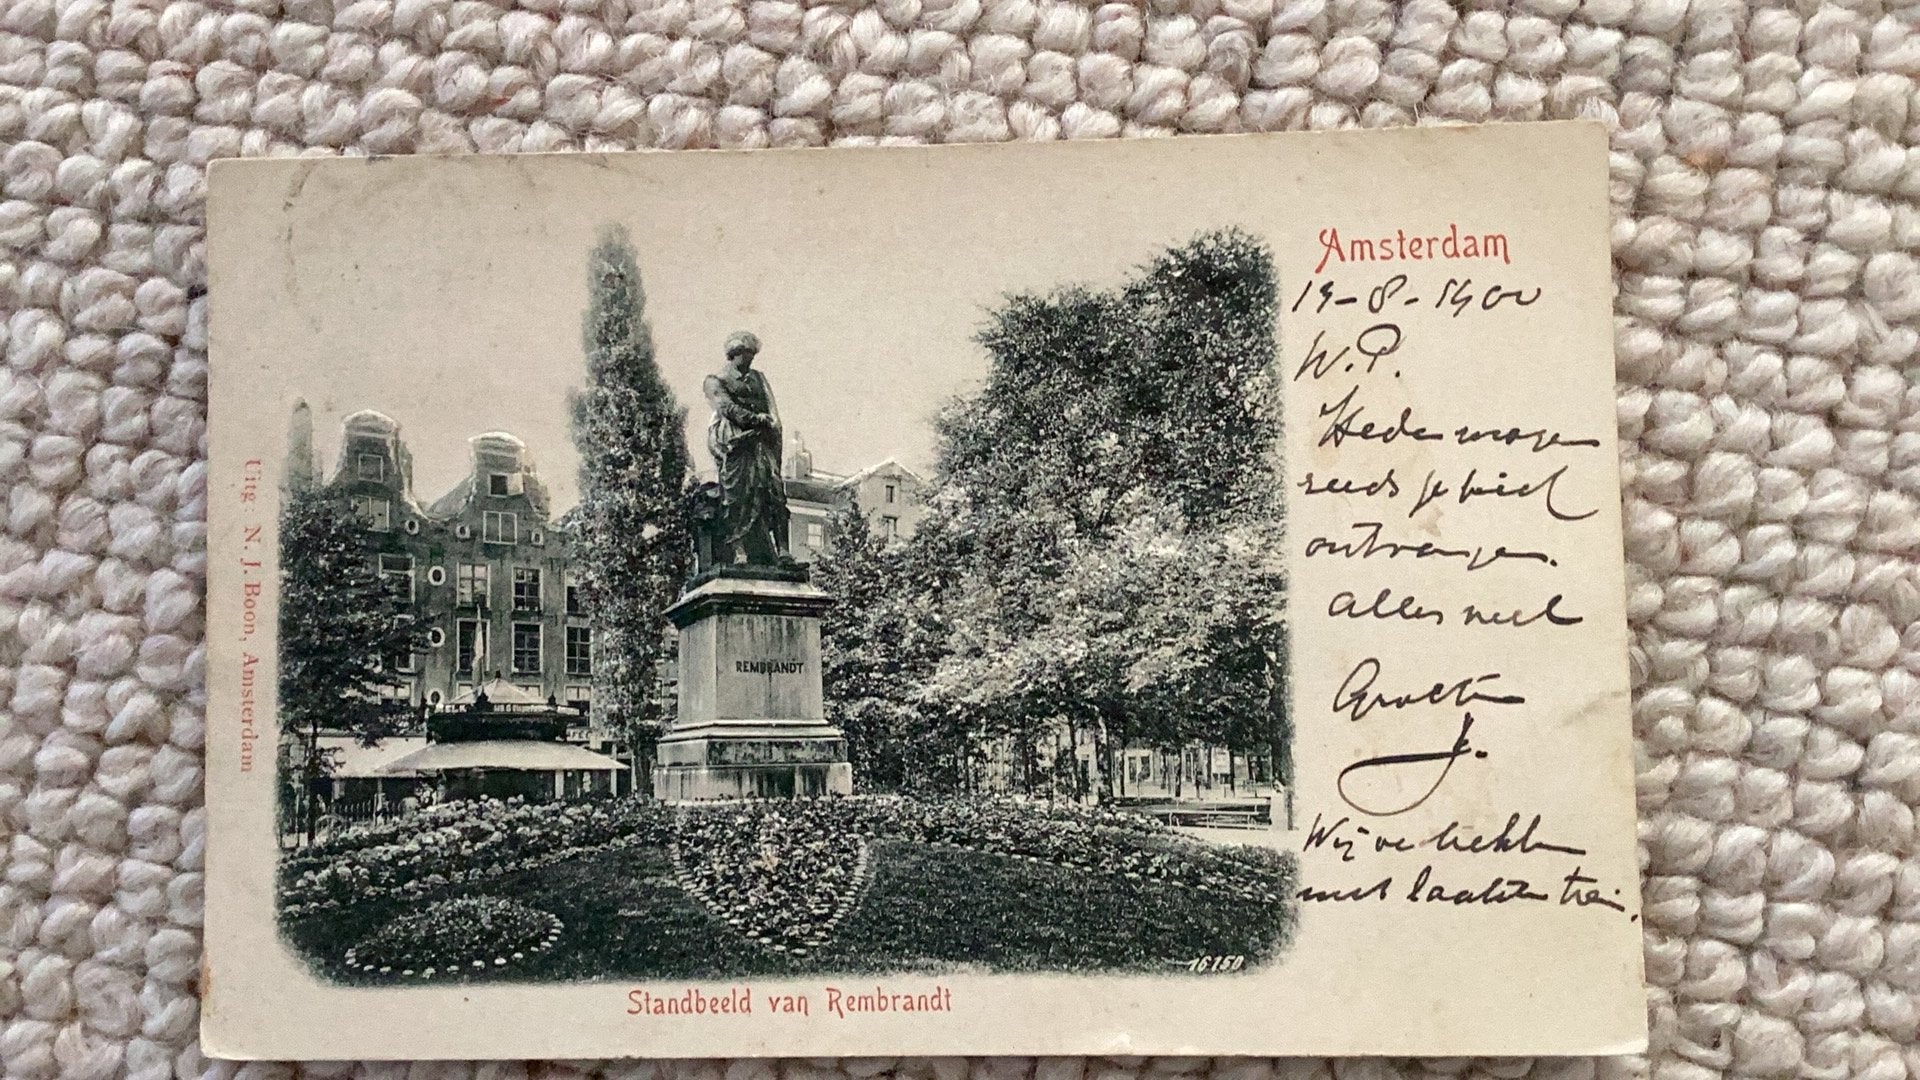 Amsterdam
14-8-1900
W.P.
Heden morgen
reeds je brief
ontvangen.
Alles wel
Groeten
J.
Wij vertrekken
met laatsten trein.
REMBRANDT
16150
Uitg: N. J. Boon, Amsterdam
Standbeeld van Rembrandt